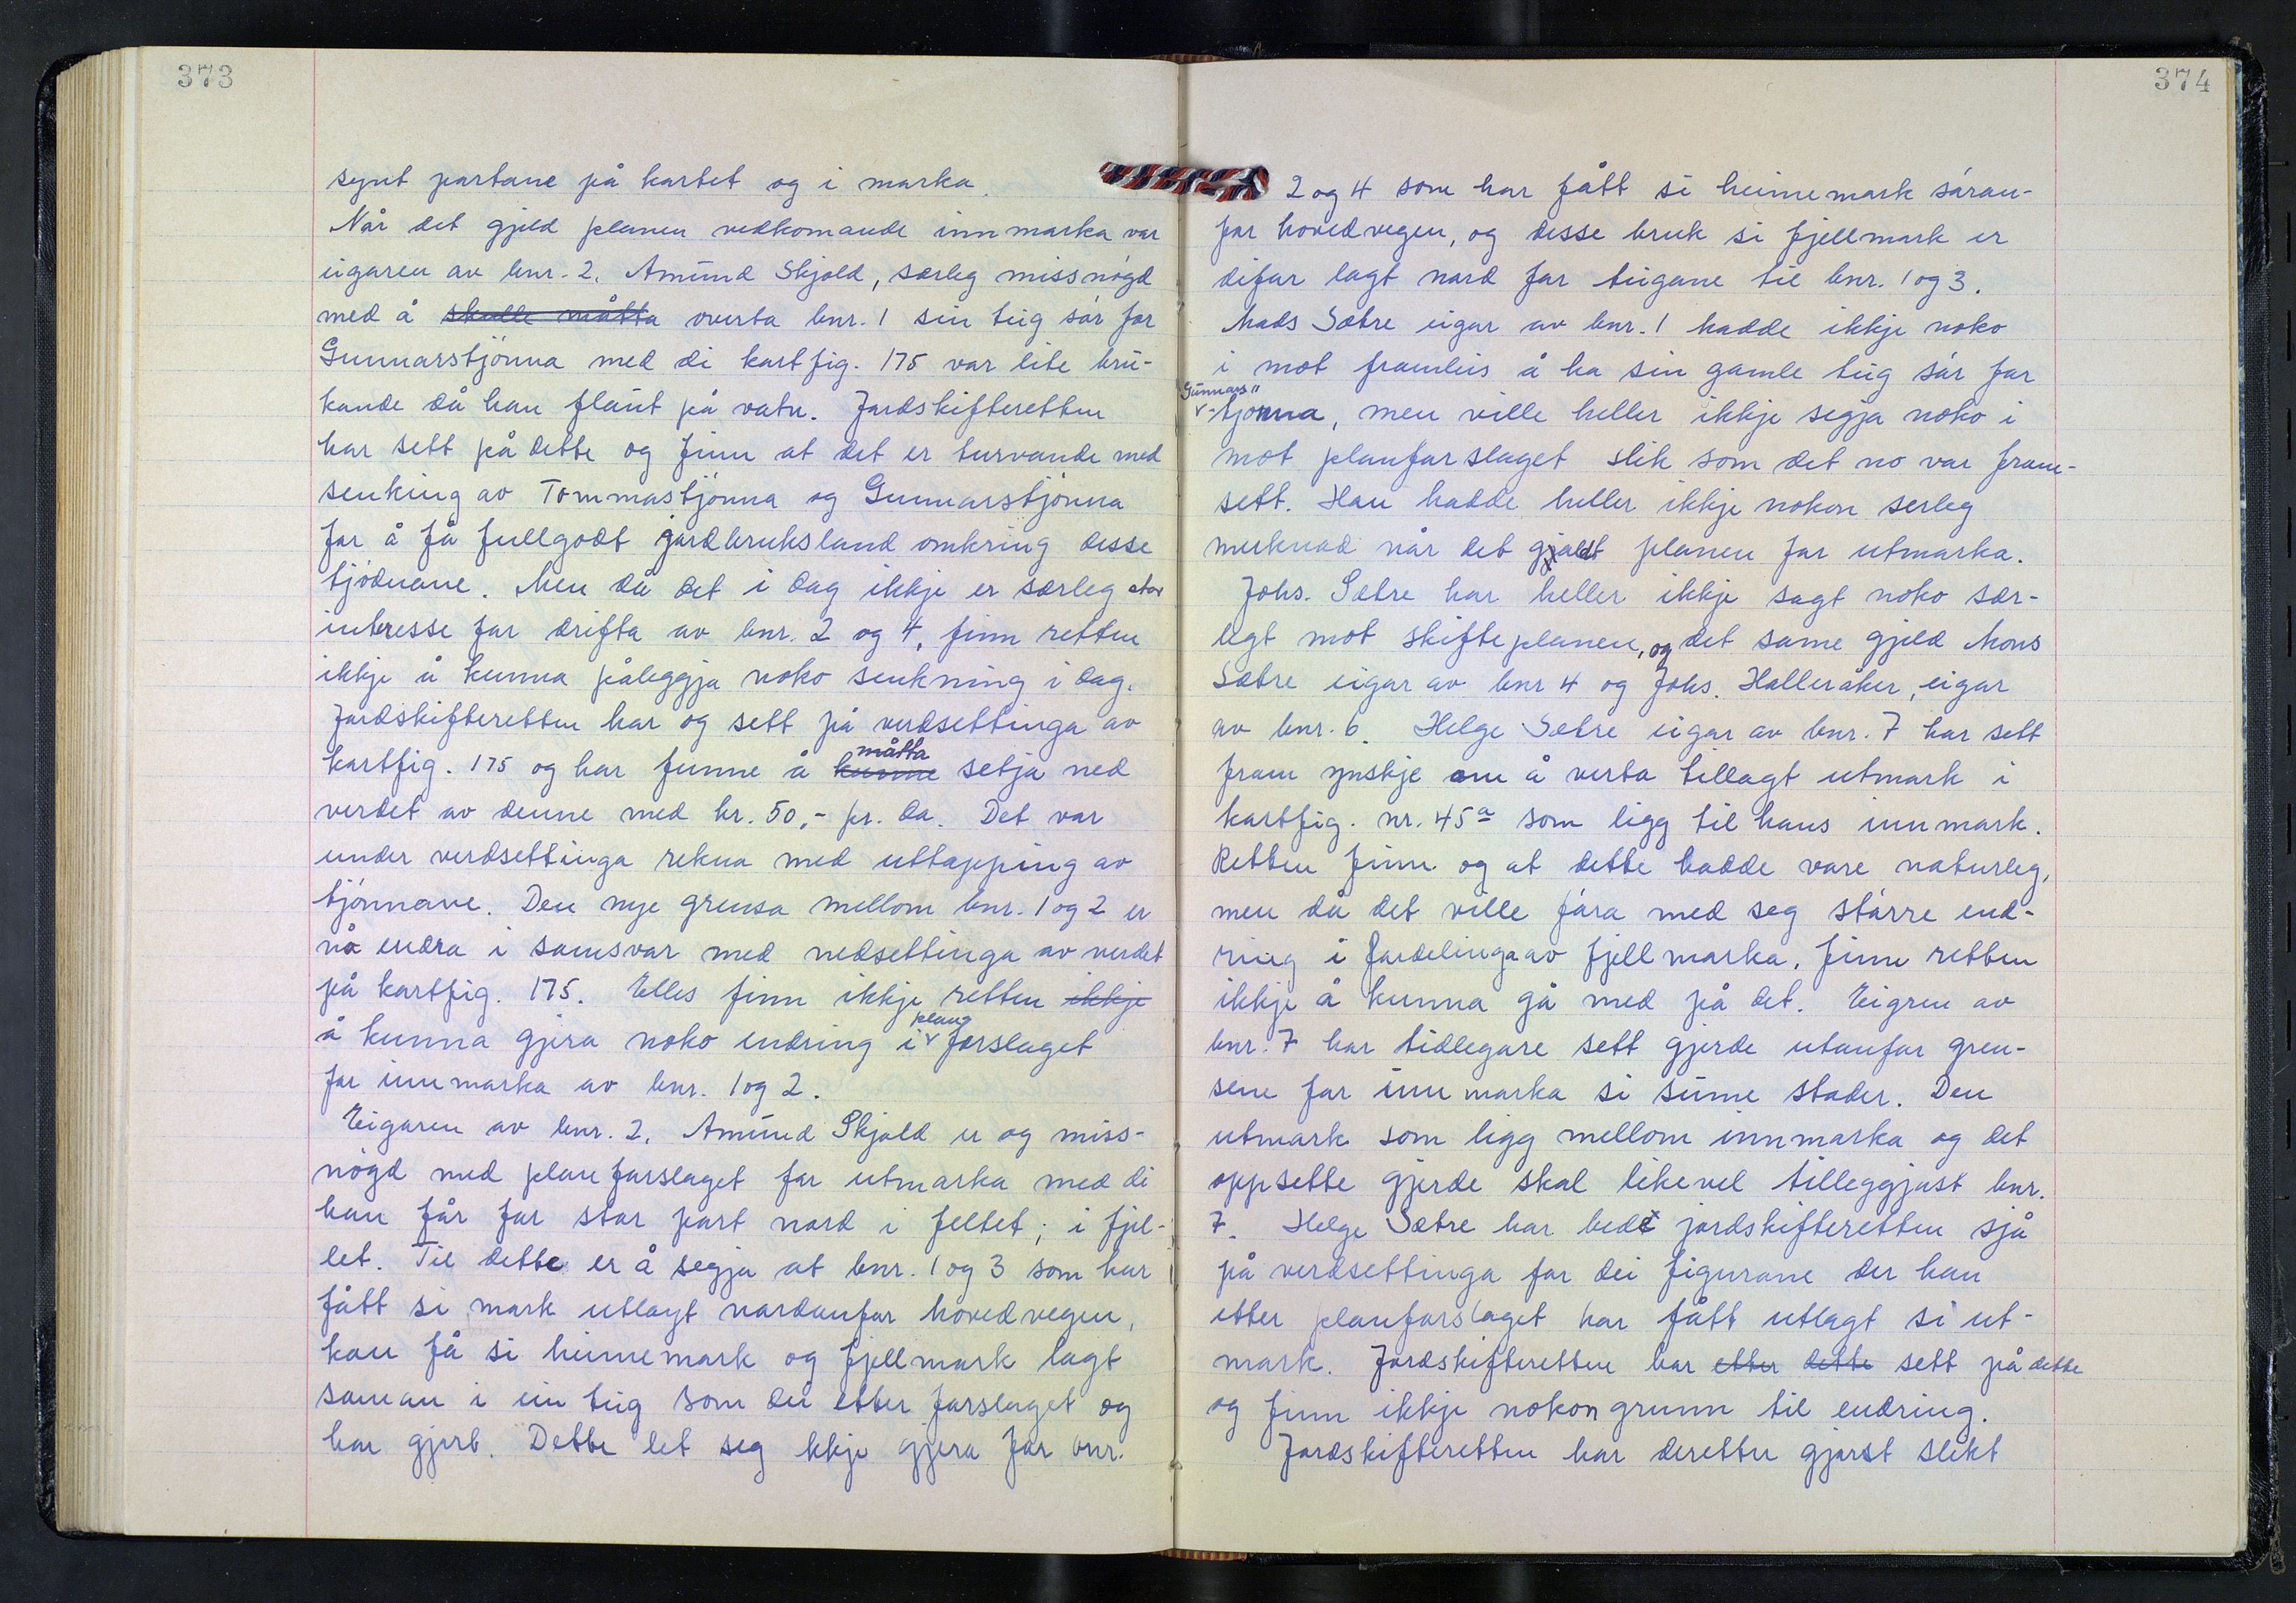 373
synt partane på kartet og i marka.
Når det gjeld planen vedkomande innmarka var
eigaren av bnr. 2. Amund Skjold, særleg missnøgd
med å skulle måtta overta bnr. 1 sin teig sør for
Gunnarstjønna med di kartfig. 175 var lite bru-
kande då han flaut på vatn. Jordskifteretten
har sett på dette og finn at det er turvande med
senking av Tommastjønna og Gunnarstjønna
for å få fullgodt jordbruksland omkring desse
tjødnane. Men då det i dag ikkje er særleg stor
interesse for drifta av bnr. 2 og 4, finn retten
ikkje å kunna påleggja noko senkning i dag.
Jordskifteretten har og sett på verdsettinga av
kartfig. 175 og har funne å kunne måtta setja ned
verdet av denne med kr. 50,- pr. da. Det var
under verdsettinga rekna med uttapping av
tjønnane. Den nye grensa mellom bnr. 1 og 2 er
nå endra i samsvar med nedsettinga av verdet
på kartfig. 175. Elles finn ikkje retten ikkje
å kunna gjera noko endring i plan forslaget
for innmarka av bnr. 1 og 2.
Eigaren av bnr. 2. Amund Skjold er og miss-
nøgd med planforslaget for utmarka med di
han får for stor part nord i feltet; i fjel-
let. Til dette er å segja at bnr. 1 og 3 som har
fått si mark utlagt nordanfor hovedvegen,
kan få si heimemark og fjellmark lagt
saman i ein teig som dei etter forslaget og
har gjort. Dette let seg ikkje gjera for bnr.
374
2 og 4 som har fått si heimemark søran-
for hovedvegen, og desse bruk si fjellmark er
difor lagt nord for teigane til bnr. 1 og 3.
Mads Sætre eigar av bnr. 1 hadde ikkje noko
i mot framleis å ha sin gamle teig sør for
Gunnars-tjønna, men ville heller ikkje segja noko i
mot planforslaget slik som det no var fram-
sett. Han hadde heller ikkje nokon serleg
merknad når det gjaldt planen for utmarka.
Johs. Sætre har heller ikkje sagt noko sær-
legt mot skifteplanen, og det same gjeld Mons
Sætre eigar av bnr 4 og Johs. Halleråker, eigar
av bnr. 6. Helge Sætre eigar av bnr. 7 har sett
fram ynskje om å verta tillagt utmark i
kartfig. nr. 45a som ligg til hans innmark.
Retten finn og at dette hadde vore naturleg,
men då det ville føra med seg større end-
ring i fordelinga av fjellmarka, finn retten
ikkje å kunna gå med på det. Eigren av
bnr. 7 har tidlegare sett gjerde utanfor gren-
sene for innmarka si sume stader. Den
utmark som ligg mellom innmarka og det
oppsette gjerde skal likevel tilleggjast bnr.
7. Helge Sætre har bedt jordskifteretten sjå
på verdsettinga for dei figurane der han
etter planforslaget har fått utlagt si ut-
mark. Jordskifteretten har etter dette sett på dette
og finn ikkje nokon grunn til endring.
Jordskifteretten har deretter gjort slikt